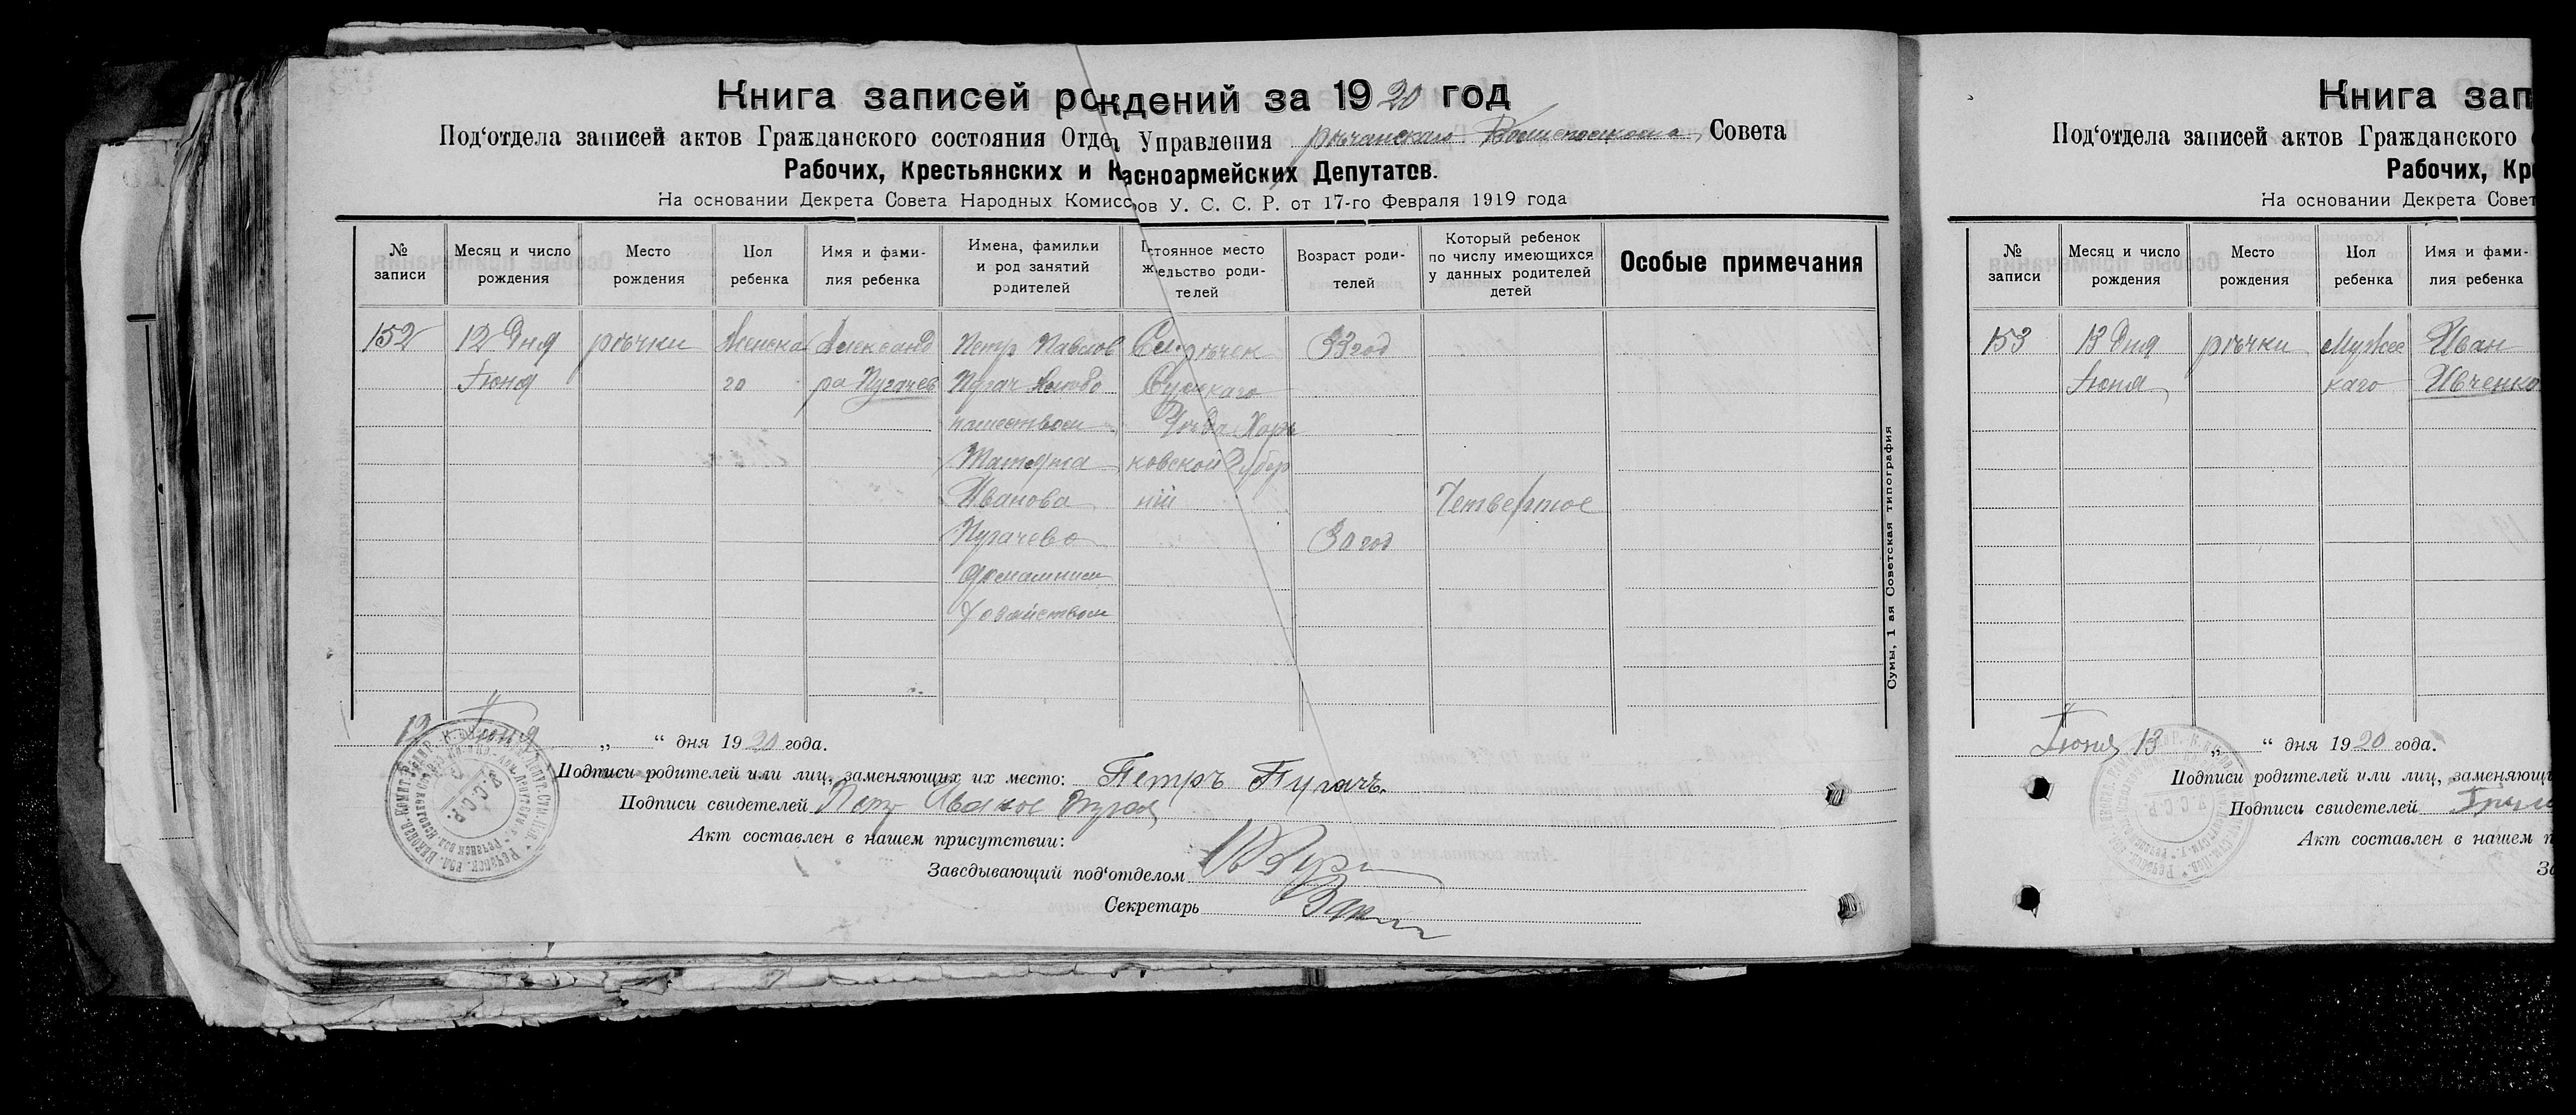 Книга записей рождений за 1920 год
Под‘отдела записей актов Гражданского состояния Отдела Управления рѣчанскаго Совета
Рабочих, Крестьянских и Красноармейских Депутатов.
На основании Декрета Совета Народных Комиссаров У. С. С. Р. от 17-го Февраля 1919 года
№ записи
Месяц и число рождения
Место рождения
Пол ребенка
Имя и фами-
лия ребенка
Имена, фамилии
и род занятий
родителей
стоянное место
жительство роди-
телей
Возраст роди-
телей
Который ребенок
по числу имеющихся
у данных родителей
детей
Особые примечания
152 12 Дня рѣчки Женска Александ Петр Павлов Сел. рѣчек 33 год
Іюня го ра Пугачев Пугач Хлебо Сумскаго
пашеством Уѣзда Харь
ковской Губер
Иванова ніи Четвертое
Пугачева 30 год
домашним
хозяйством
12 Іюня „ “ дня 1920 года.
Подписи родителей или лиц, заменяющих их место: Петръ Пугачъ.
Подписи свидетелей
Акт составлен в нашем присутствии:
Завсдывающий под‘отделом
Секретарь
Сумы, 1 ая Советская типография
Книга зап
Под‘отдела записей актов Гражданского
Рабочих, Кр
На основании Декрета Совет
№ записи
Месяц и число рождения
Место рождения
Пол ребенка
Имя и фами-
лия ребенка
153 13 Дня рѣчки Мужес Иван
Іюня каго Ивченко
Іюня 13 „ “ дня 1920 года.
Подписи родителей или лиц, заменяющи
Подписи свидетелей
Акт составлен в нашем п
За